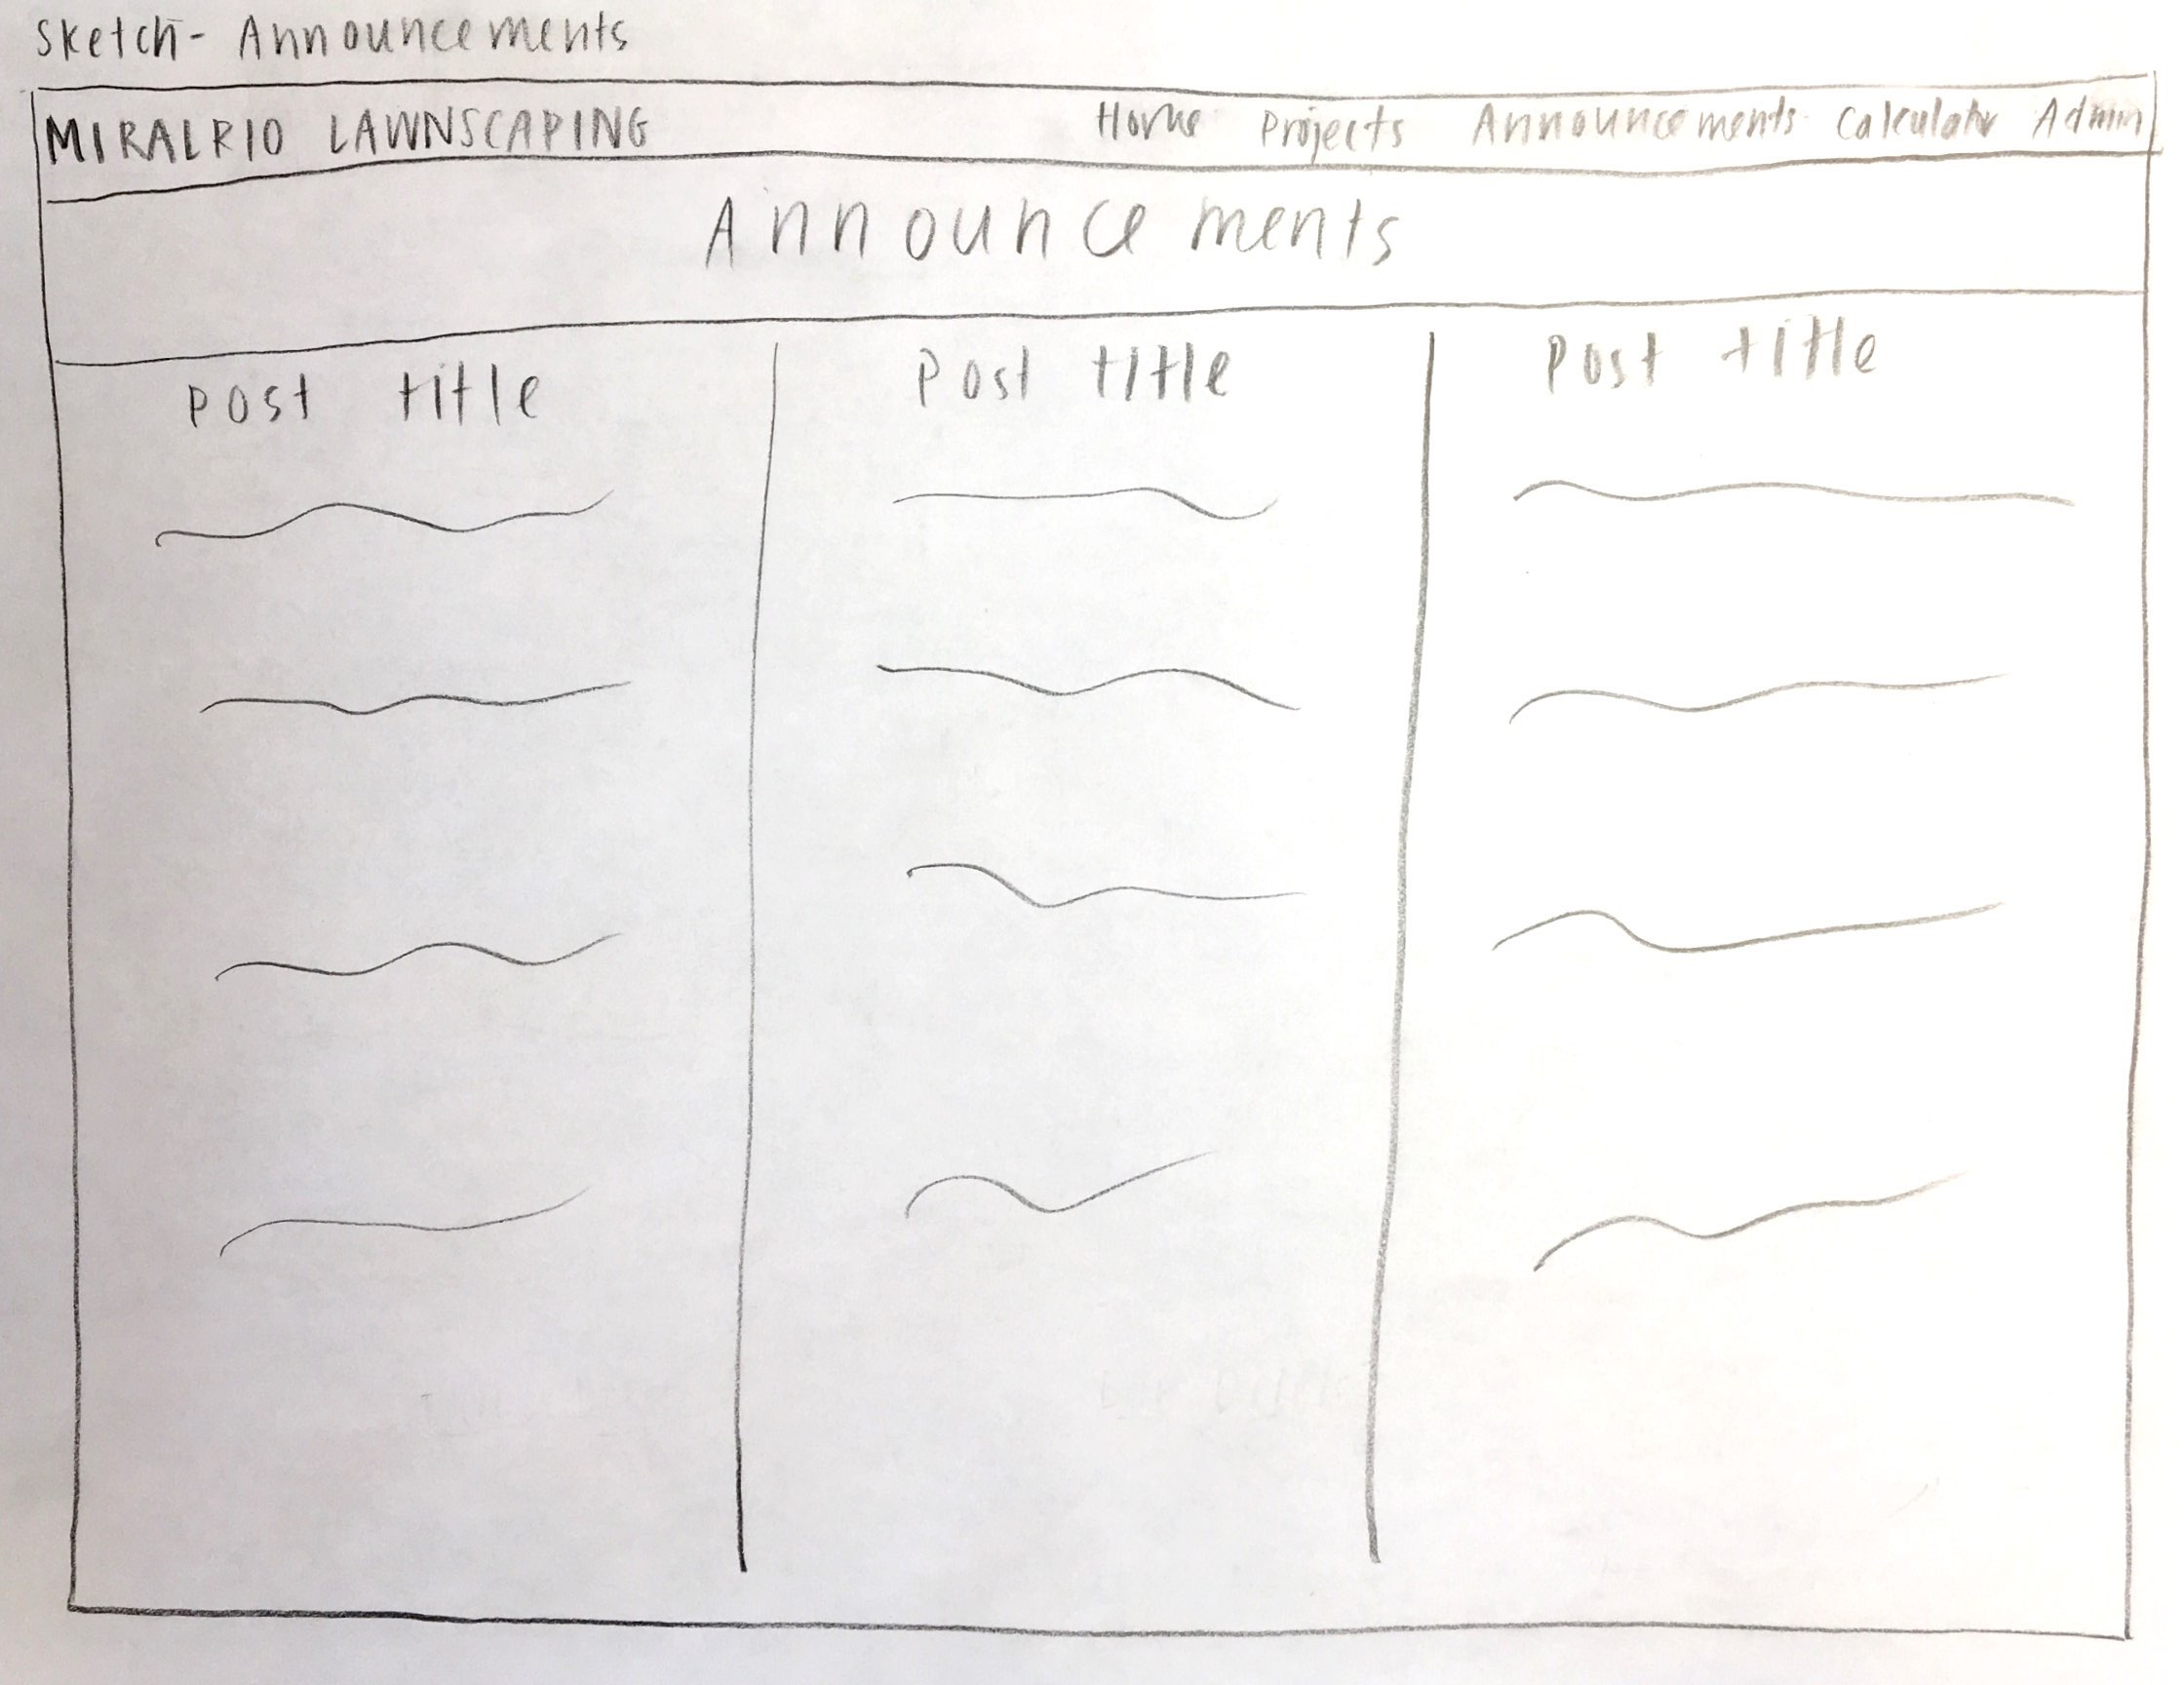 Sketch - Announcements
MIRALRIO LAWNSCAPING Home Projects Announcements Calculator Admin
Announcements
Post title Post title Post title